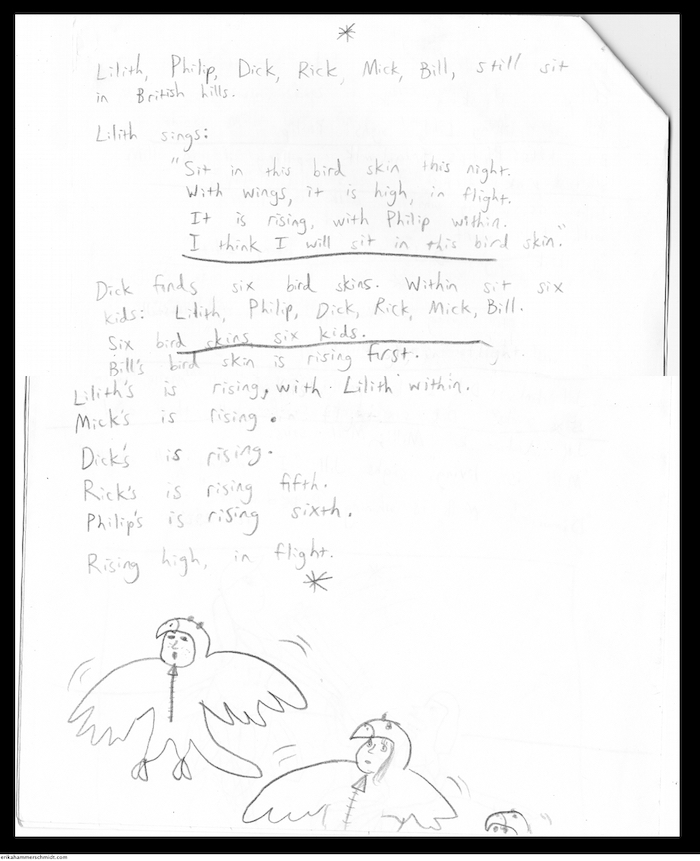 Lilith, Philip, Dick, Rick, Mick, Bill, still sit
in British hills.
Lilith sings:
"Sit in this bird skin this night.
With wings, it is high, in flight.
It is rising, with Philip within.
I think I will sit in this bird skin."
Dick finds six bird skins. Within sit six
kids: Lilith, Philip, Dick, Rick, Mick, Bill.
Six bird skins, six kids.
Bill's bird skin is rising first.
Lilith's is rising, with Lilith within.
Mick's is rising.
Dick's is rising.
Rick's is rising fifth.
Philip's is rising sixth.
Rising high, in flight.
erikahammerschmidt.com